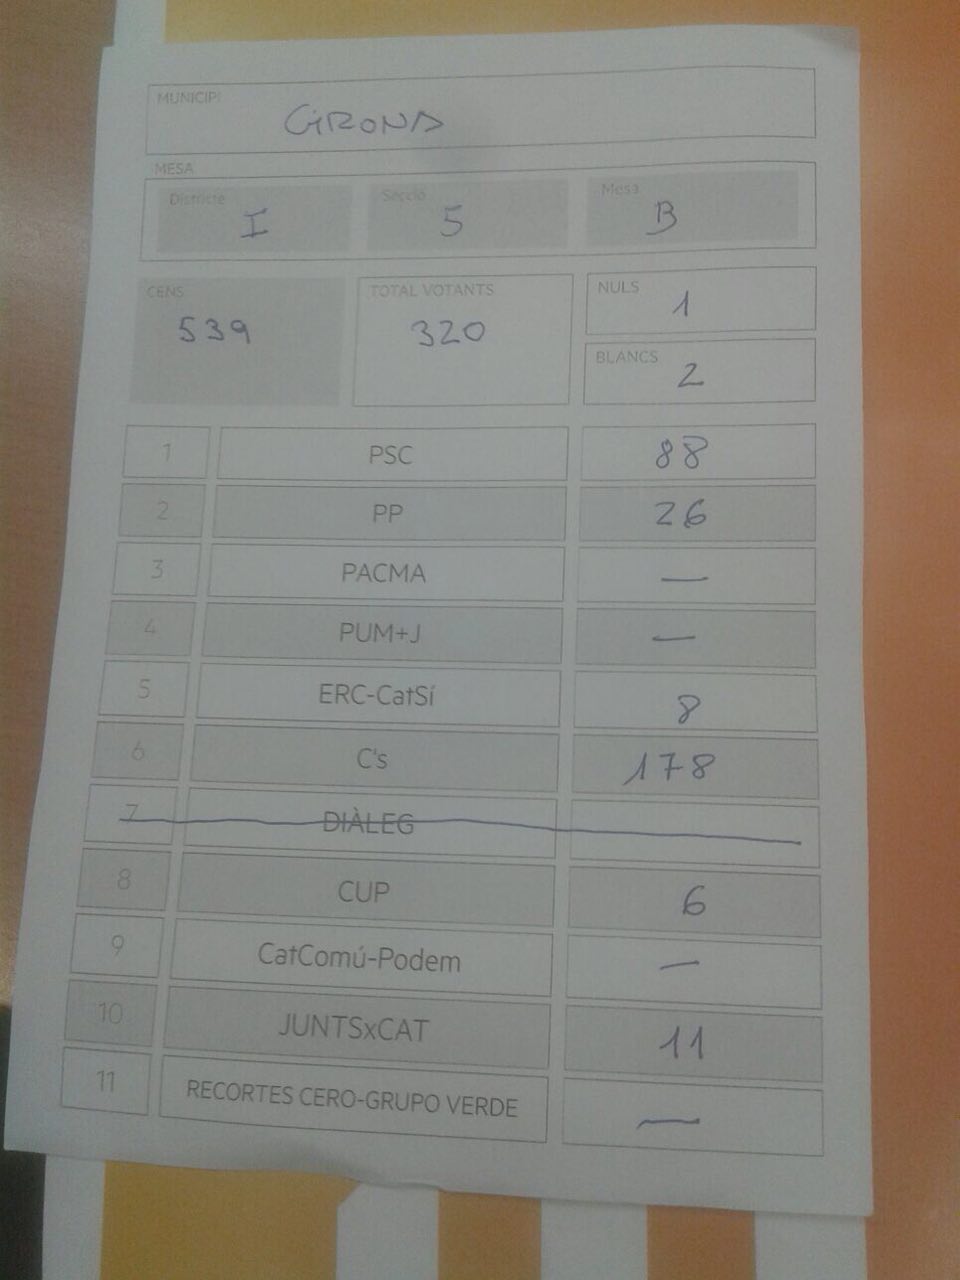 MUNICIPI
GIRONA
MESA
Districte Secció Mesa
I 5 B
CENS TOTAL VOTANTS NULS
539 320 1
BLANCS
2
1 PSC 88
2 PP 26
3 PACMA —
4 PUM+J —
5 ERC-CatSí 8
6 C's 178
7 DIÀLEG
8 CUP 6
9 CatComú-Podem —
10 JUNTSxCAT 11
11 RECORTES CERO-GRUPO VERDE —